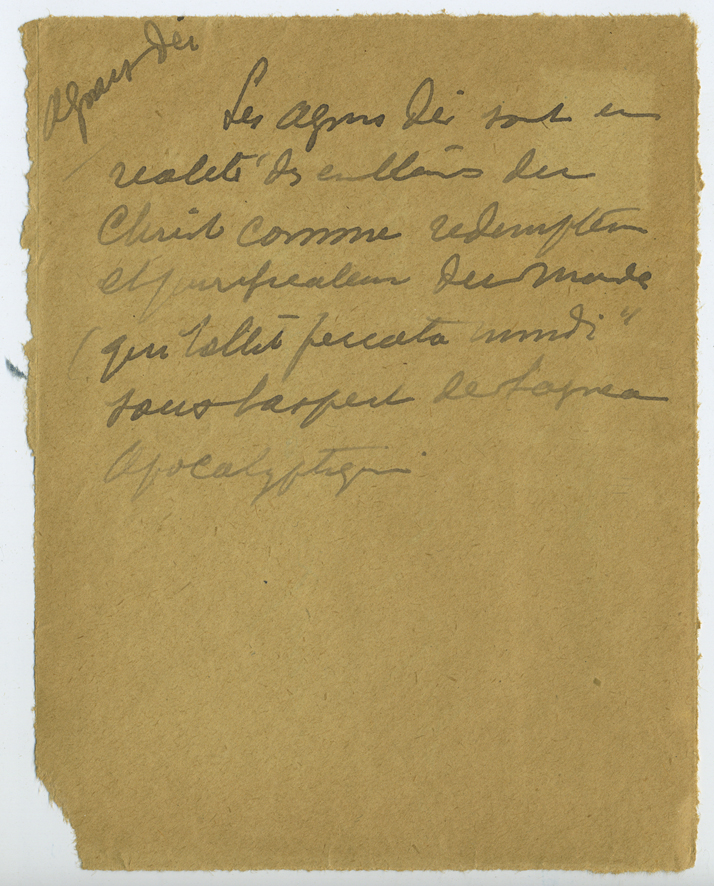 Agnus Dei
Les agnus Dei sont en
realité des emblêms du
Christ comme redempteur
et purificateur du monde
"qui tollit peccata mundi"
sous l'aspect de l'agneau
Apocalyptique.